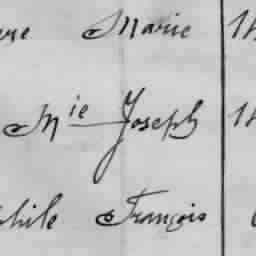 Marie 18
Mie Joseph 18
phile François